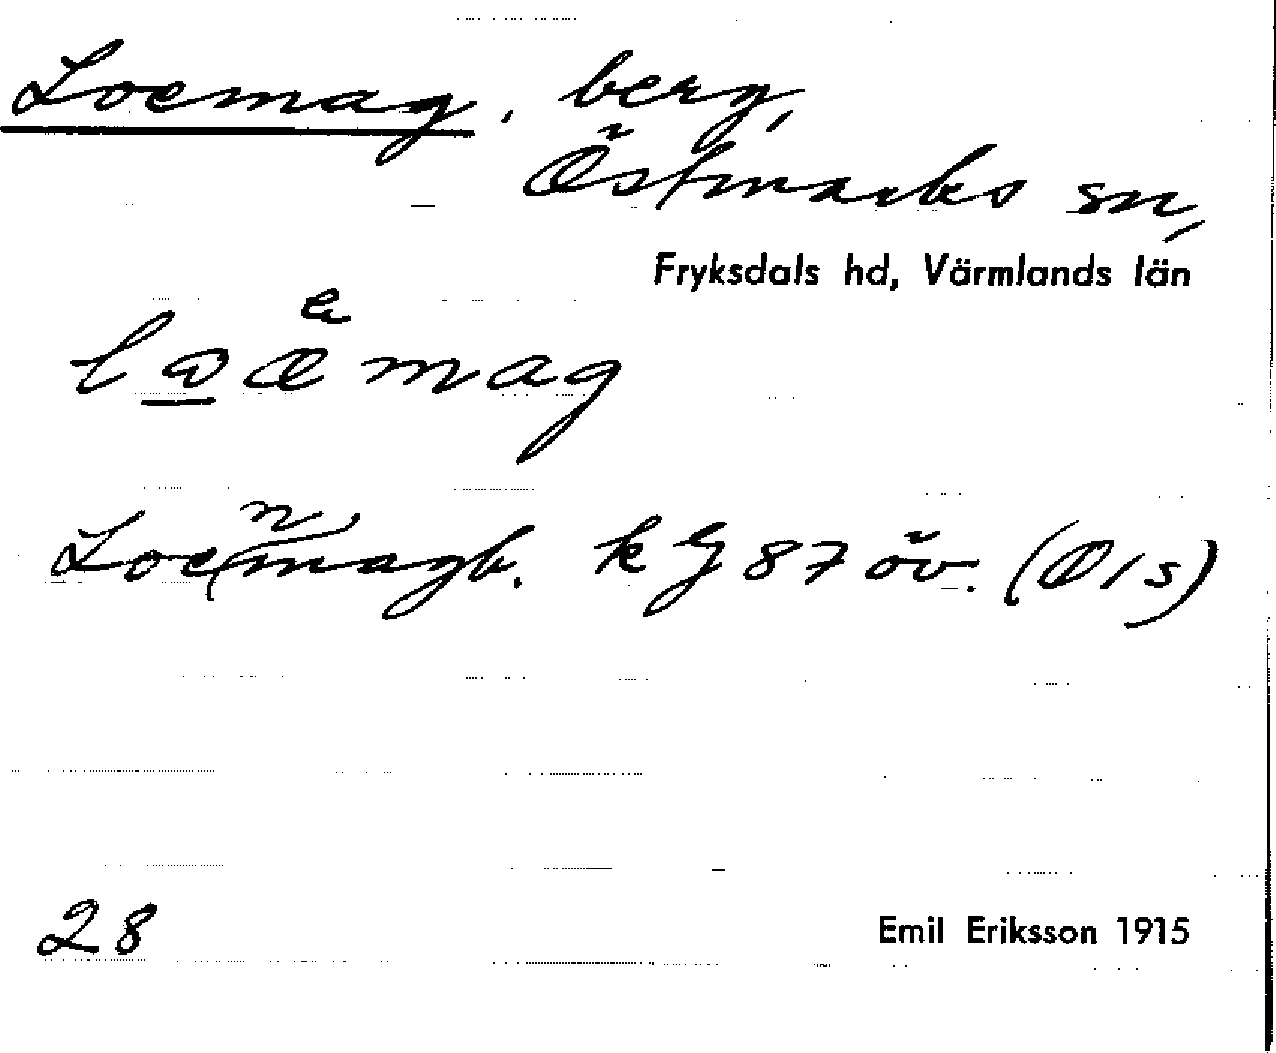 Loemag, berg,
Östmarks sn,
Fryksdals hd, Värmlands län
Loemagb. kG 87 öv. (Ö/s)
28
Emil Eriksson 1915